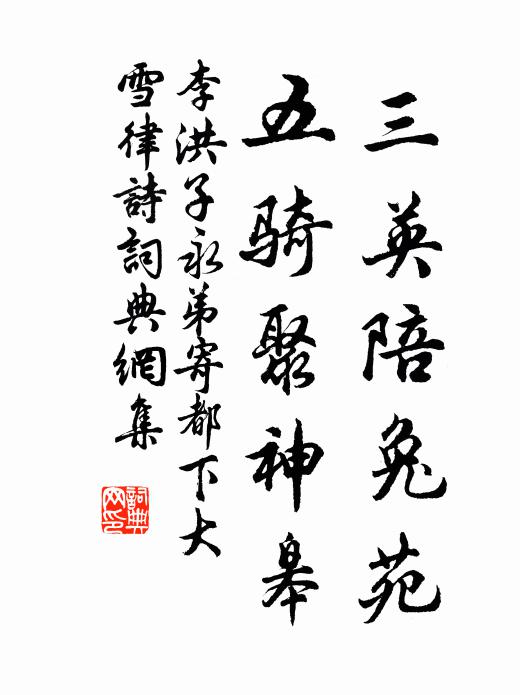 三英陪兔苑
五骑聚神皋
李洪子永弟寄都下大
雪律詩詞典網集
詞典网印